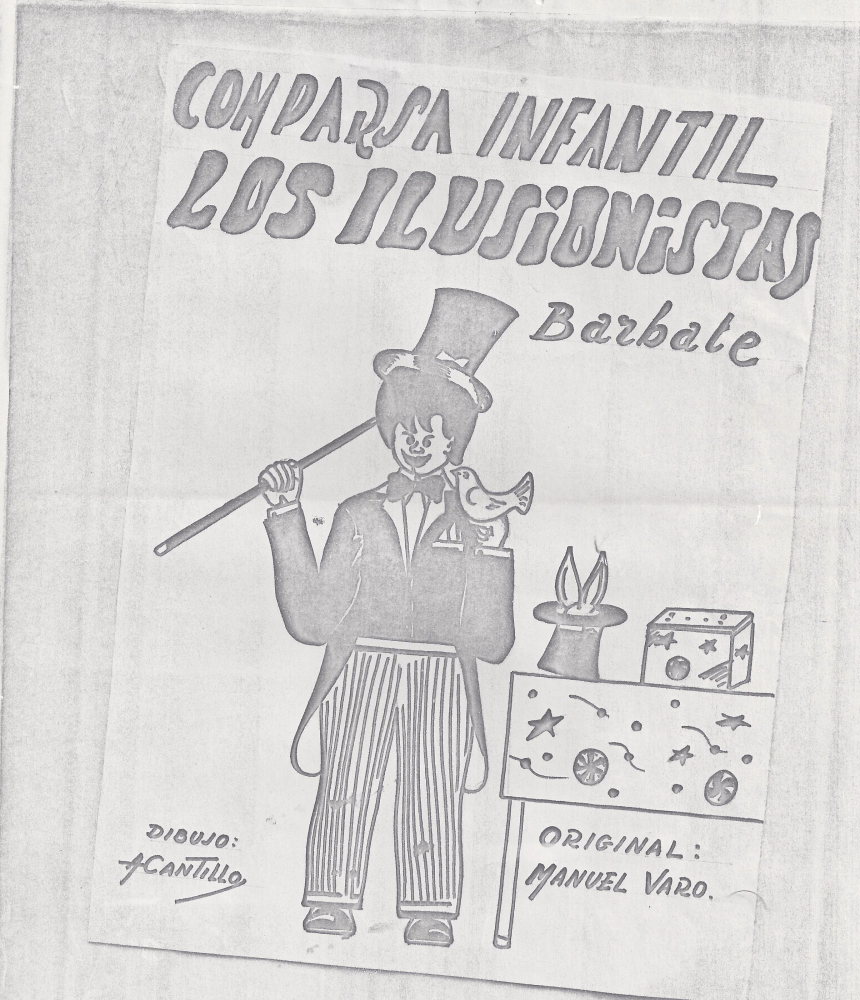 COMPARSA INFANTIL
LOS ILUSIONISTAS
Barbate
DIBUJO:
ACANTILLO
ORIGINAL:
MANUEL VARO.